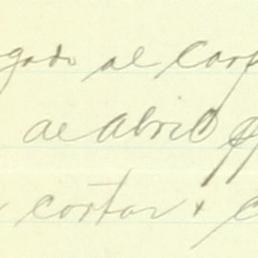 gado al Car
de Abril
cortar + C